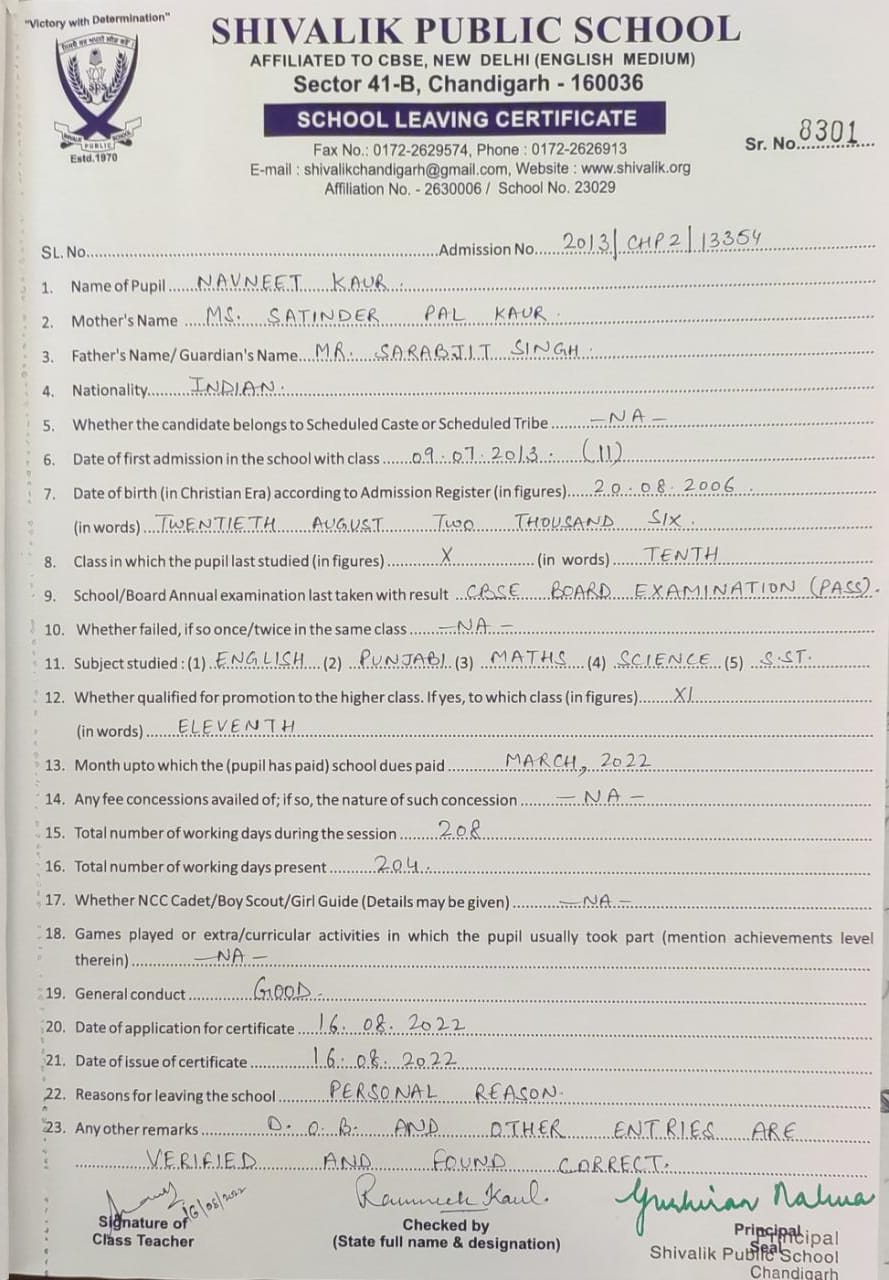 "Victory with Determination"
SHIVALIK PUBLIC SCHOOL
AFFILIATED TO CBSE, NEW DELHI (ENGLISH MEDIUM)
Sector 41-B, Chandigarh - 160036
SCHOOL LEAVING CERTIFICATE
SPS
SHIVALIK PUBLIC SCHOOL
Estd.1970
Fax No.: 0172-2629574, Phone : 0172-2626913
Sr. No. 8301
E-mail : shivalikchandigarh@gmail.com, Website : www.shivalik.org
Affiliation No. - 2630006 / School No. 23029
SL. No. Admission No. 2013/CHP2/13354
1. Name of Pupil NAVNEET KAUR.
2. Mother's Name MS. SATINDER PAL KAUR.
3. Father's Name/ Guardian's Name MR. SARABJIT SINGH.
4. Nationality INDIAN.
5. Whether the candidate belongs to Scheduled Caste or Scheduled Tribe -NA-
6. Date of first admission in the school with class 09.07.2013. (II)
7. Date of birth (in Christian Era) according to Admission Register (in figures) 20.08.2006.
(in words) TWENTIETH AUGUST TWO THOUSAND SIX.
8. Class in which the pupil last studied (in figures) X (in words) TENTH
9. School/Board Annual examination last taken with result CBSE BOARD EXAMINATION (PASS).
10. Whether failed, if so once/twice in the same class -NA-
11. Subject studied : (1) ENGLISH (2) PUNJABI (3) MATHS (4) SCIENCE (5) S.ST.
12. Whether qualified for promotion to the higher class. If yes, to which class (in figures) XI
(in words) ELEVENTH
13. Month upto which the (pupil has paid) school dues paid MARCH, 2022
14. Any fee concessions availed of; if so, the nature of such concession -NA-
15. Total number of working days during the session 208
16. Total number of working days present 204.
17. Whether NCC Cadet/Boy Scout/Girl Guide (Details may be given) -NA-
18. Games played or extra/curricular activities in which the pupil usually took part (mention achievements level
therein) -NA-
19. General conduct GOOD.
20. Date of application for certificate 16.08.2022
21. Date of issue of certificate 16.08.2022
22. Reasons for leaving the school PERSONAL REASON.
23. Any other remarks D.O.B. AND OTHER ENTRIES ARE
VERIFIED AND FOUND CORRECT.
16/08/2022
Signature of
Class Teacher
Kaul.
Checked by
(State full name & designation)
Principal
Seal
Principal
Shivalik Public School
Chandigarh